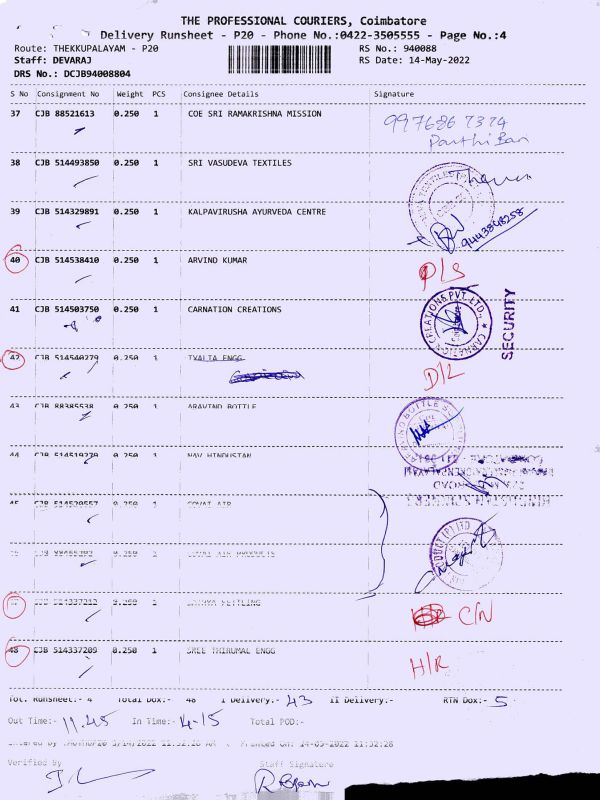 THE PROFESSIONAL COURIERS, Coimbatore
Delivery Runsheet - P20 - Phone No.:0422-3505555 - Page No.:4
Route: THEKKUPALAYAM - P20 RS No.: 940088
Staff: DEVARAJ RS Date: 14-May-2022
DRS No.: DCJB94008804
S No Consignment No Weight PCS Consignee Details Signature
37 CJB 88521613 0.250 1 COE SRI RAMAKRISHNA MISSION
Parthi Ban
38 CJB 514493850 0.250 1 SRI VASUDEVA TEXTILES
39 CJB 514329891 0.250 1 KALPAVIRUSHA AYURVEDA CENTRE
9443848258
40 CJB 514538410 0.250 1 ARVIND KUMAR
D/S
41 CJB 514503750 0.250 1 CARNATION CREATIONS
CARNATION CREATIONS PVT. LTD.,
SECURITY
42 CJB 514540279 0.250 1 ENGG
D/L
43 CJB 88385538 0.250 1 ARAVIND BOTTLE
44 CJB 514519279 0.250 1 NAV HINDUSTAN
45 CJB 0.250 1 COVAI AIR
CJB 0.250 COVAI AIR PRODUCTS
CJB 514337212 0.260 1 FETTLING
C/N
48 CJB 514337209 0.250 1 SREE THIRUMAL ENGG
H/R
Tot. Runsheet:- 4 Total Dox:- 48 I Delivery:- 43 II Delivery:- RTN Dox:- 5
Out Time:- 11.45 In Time:- 4-15 Total POD:-
Printed On: 14-05-2022 11:32:28
Verified By Staff Signature